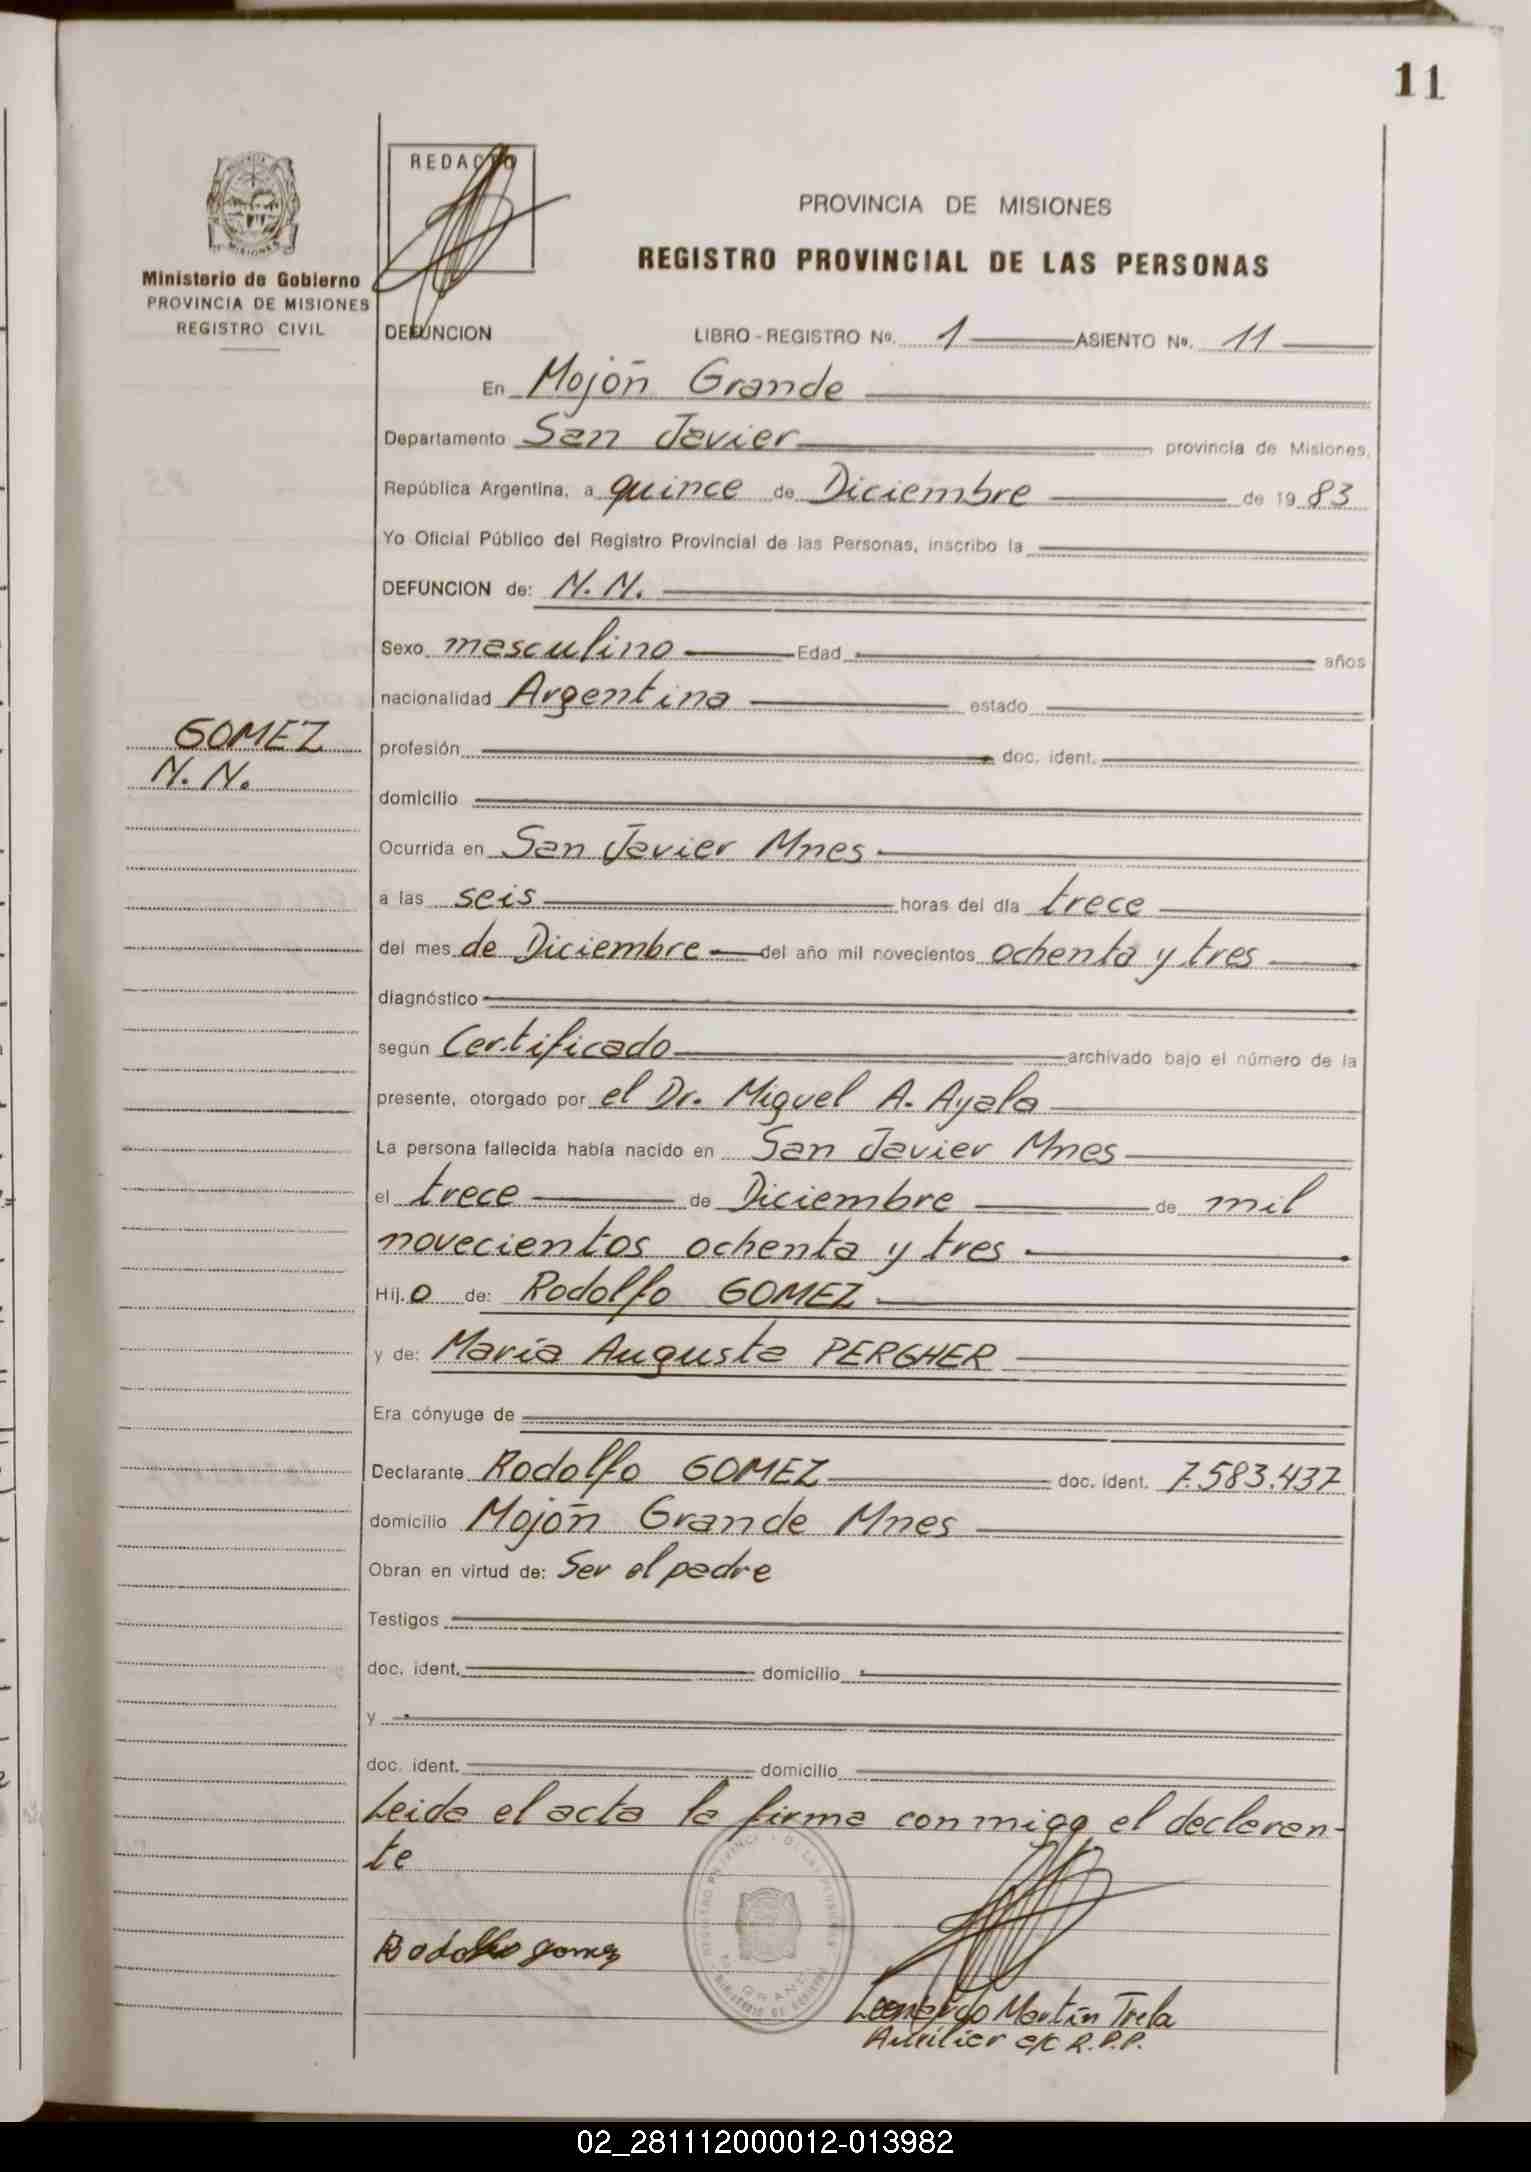 11
REDACTO
PROVINCIA DE MISIONES
REGISTRO PROVINCIAL DE LAS PERSONAS
Ministerio de Gobierno
PROVINCIA DE MISIONES
REGISTRO CIVIL
DEFUNCION LIBRO - REGISTRO Nº. 1 ASIENTO Nº. 11
En Mojón Grande
Departamento San Javier provincia de Misiones,
República Argentina, a quince de Diciembre de 19 83
Yo Oficial Público del Registro Provincial de las Personas, inscribo la
DEFUNCION de: N.N.
Sexo masculino Edad años
nacionalidad Argentina estado
GOMEZ
N.N.
profesión doc. ident.
domicilio
Ocurrida en San Javier Mnes
a las seis horas del día trece
del mes de Diciembre del año mil novecientos ochenta y tres
diagnóstico
según Certificado archivado bajo el número de la
presente, otorgado por el Dr. Miguel A. Ayala
La persona fallecida había nacido en San Javier Mnes
el trece de Diciembre de mil
novecientos ochenta y tres
Hij.o de: Rodolfo GOMEZ
y de: María Augusta PERGHER
Era cónyuge de
Declarante Rodolfo GOMEZ doc. ident. 7.583.437
domicilio Mojón Grande Mnes
Obran en virtud de: Ser el padre
Testigos
doc. ident. domicilio
y
doc. ident. domicilio
Leida el acta la firma conmigo el declaran-
te
Rodolfo gomez
Leonardo Martín Trela
Auxiliar e/c R.P.P.
02_281112000012-013982